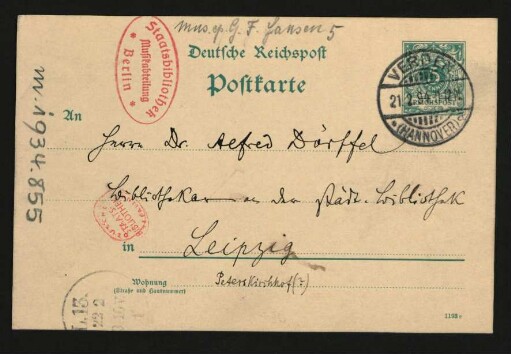 Mus. ep. G. F. Jansen 5
Staatsbibliothek
Musikabteilung
* Berlin *
Deutsche Reichspost
Postkarte
VERDEN
21 2 94
*(HANNOVER)*
m. 1934.855
An
Herrn Dr. Alfred Dörffel
Bibliothekar an der städt. Bibliothek
in
Leipzig
Peterskirchhof (?)
Wohnung
(Straße und Hausnummer)
L.13.
22 2